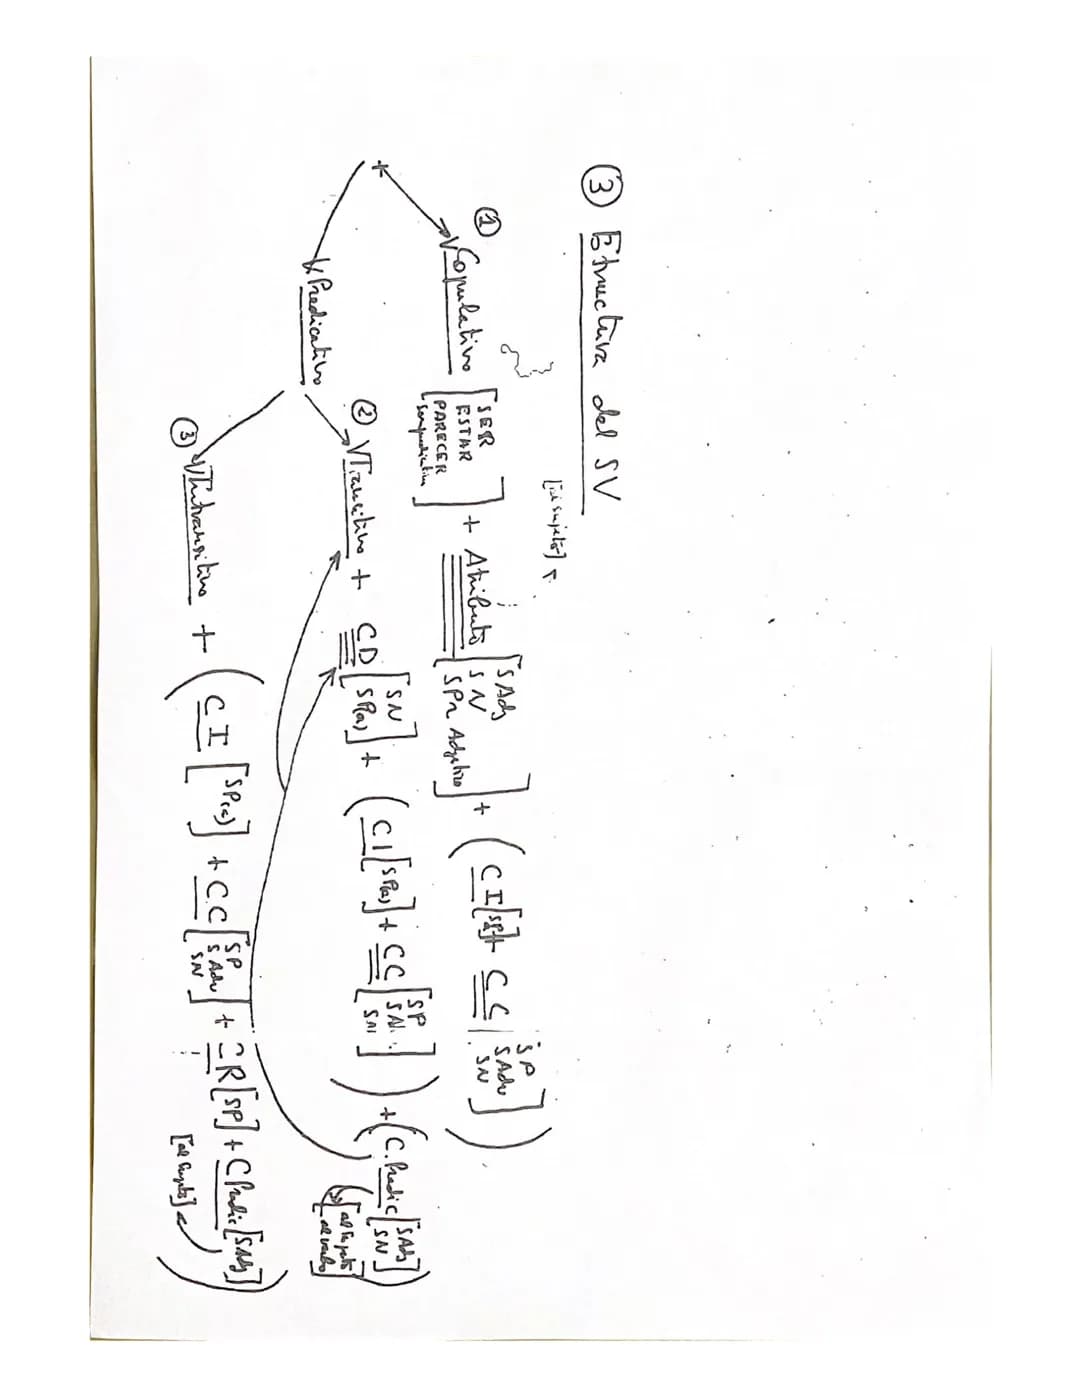 ③ Etructura del SV
[al sujeto]
① V Copulativo [SER ESTAR PARECER semipredicativo] + Atributo [S Adj SN SPr Adjetivo] + (CI [SP] + CC [SP SAdv SN])
+
V Predicativo
② V Transitivo + CD [SN SP(a)] + (CI [SP(a)] + CC [SP SN. SN]) + (C. Predic [SAdj SN])
[al Sujeto al verbo]
③ V Intransitivo + (CI [SP(a)] + CC [SP S Adv SN] + CR [SP] + C Predic [SAdj])
[al Sujeto]